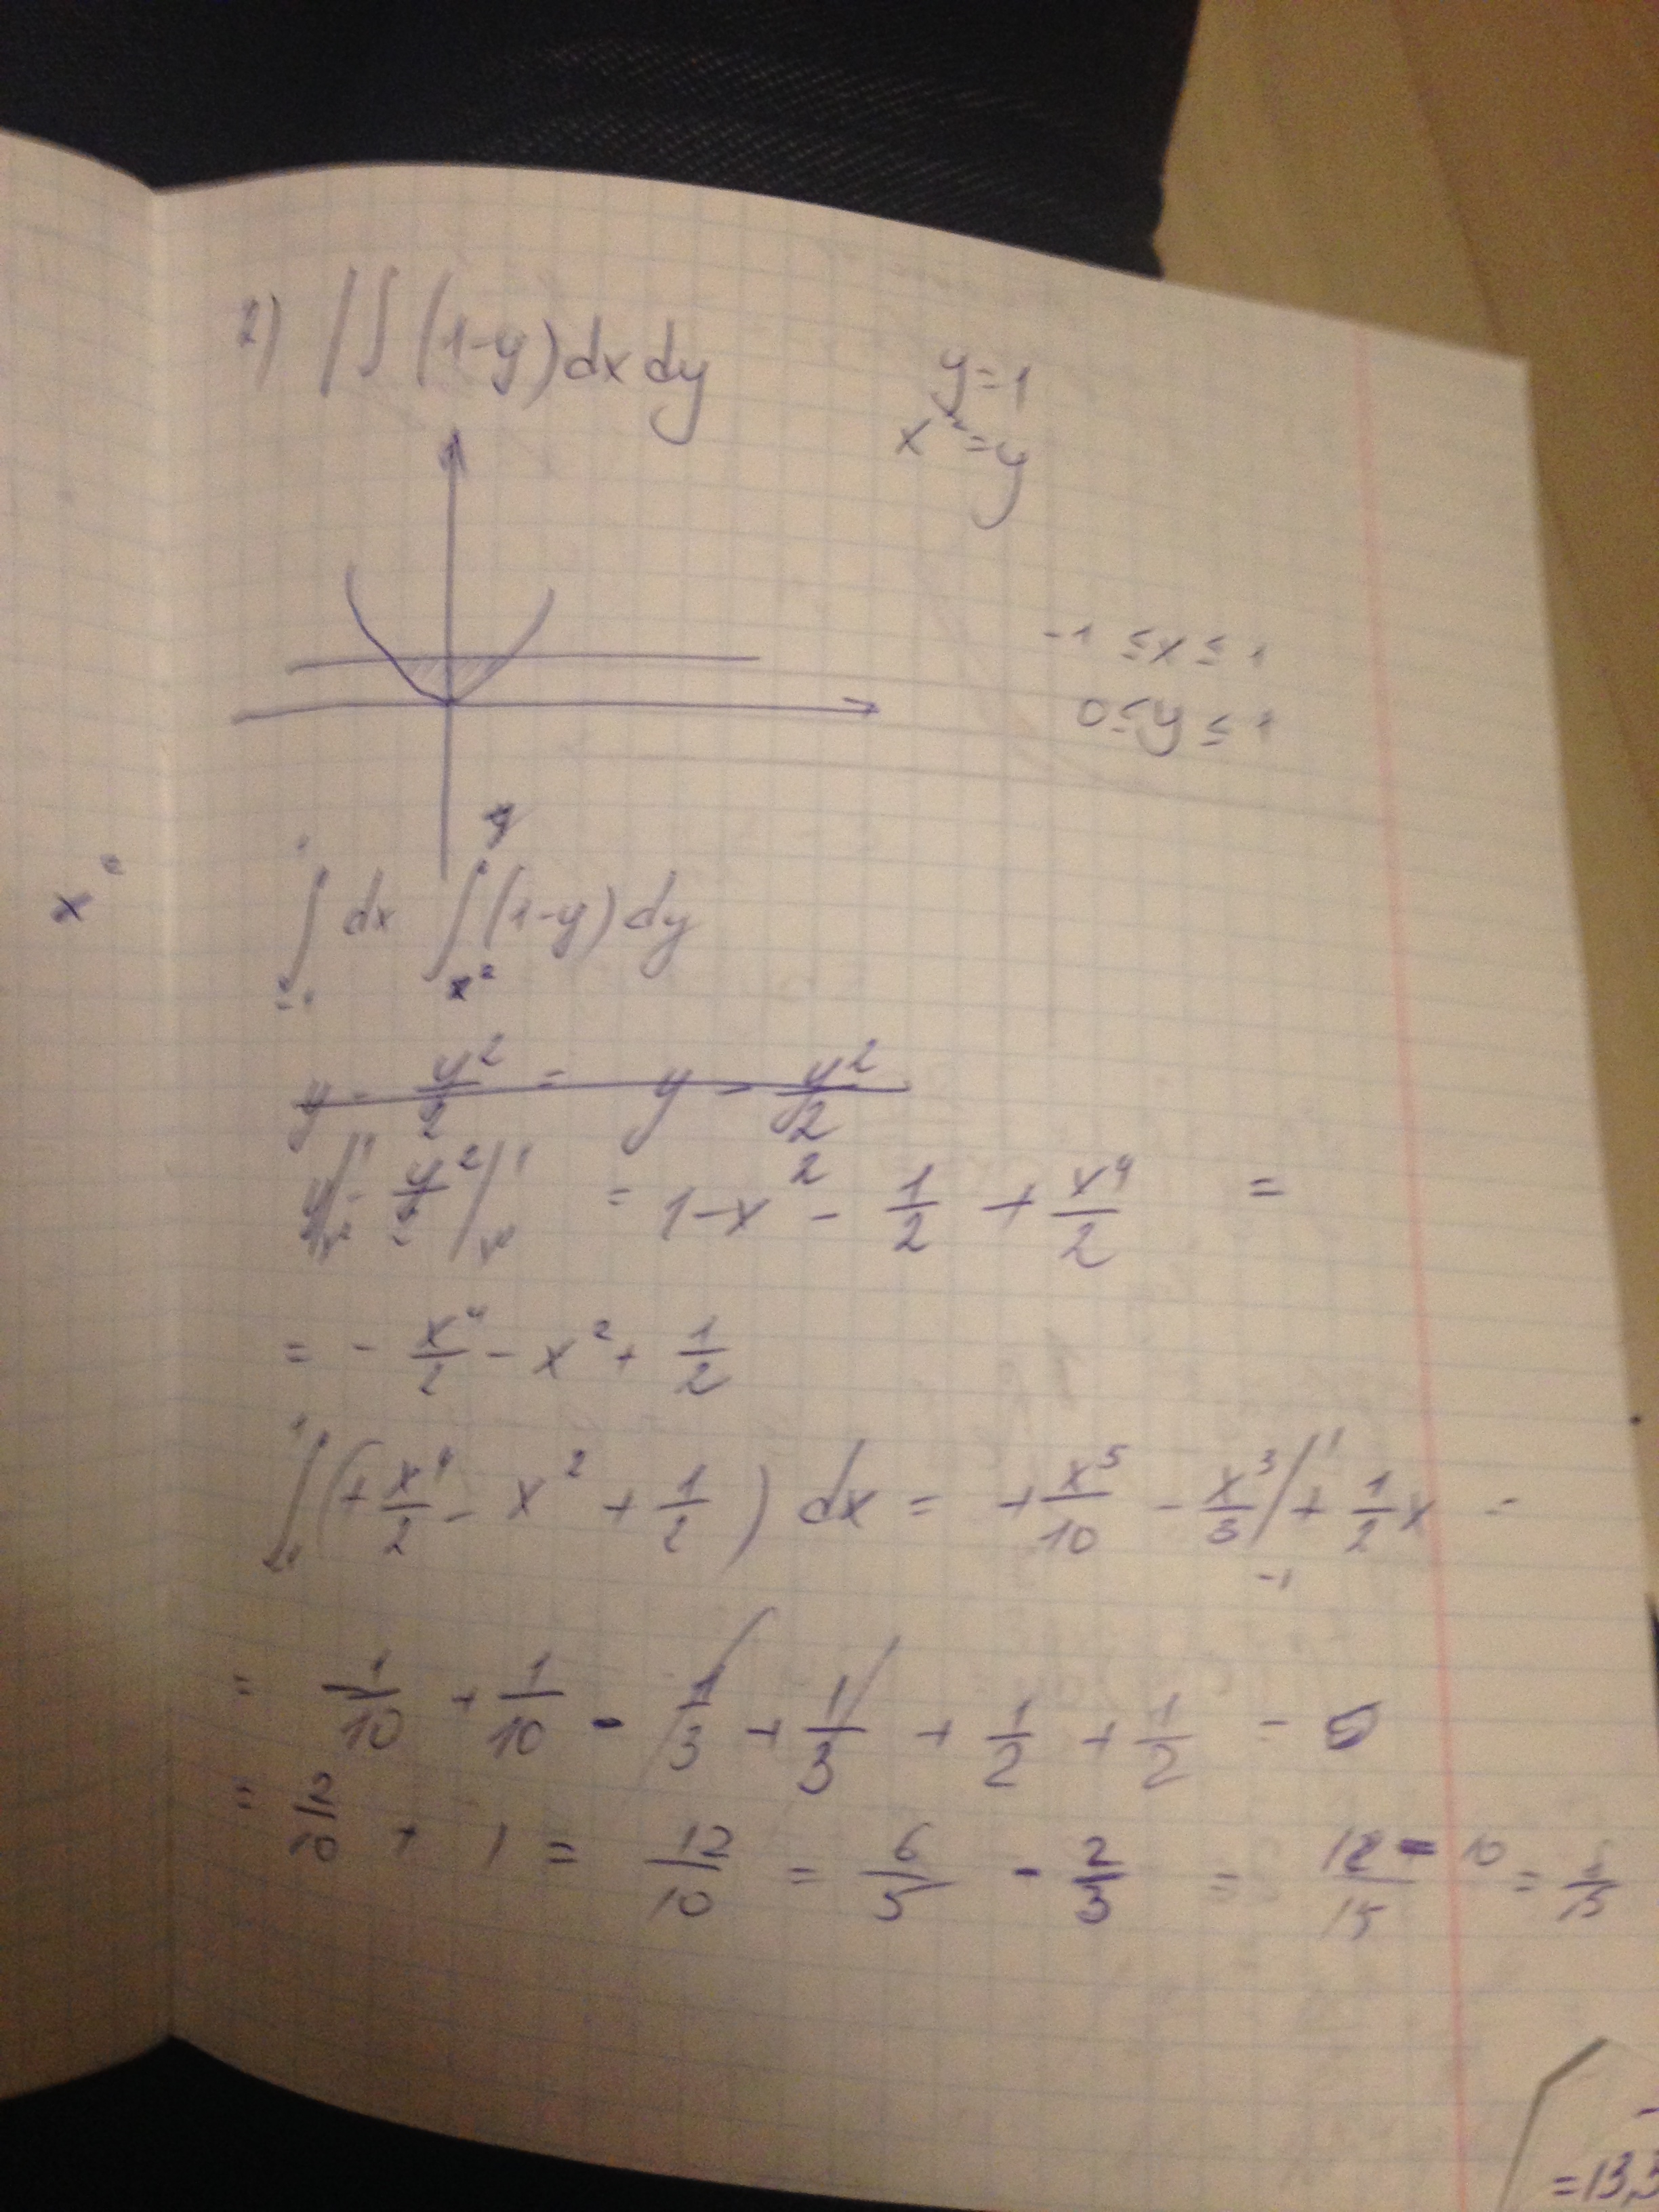 2) ∫∫ (1-y) dx dy    y=1
x² = y
-1 ≤ x ≤ 1
0 ≤ y ≤ 1
x =
∫₋₁¹ dx ∫ₓ₂ (1-y) dy
y - y²/2 = y - y²/2
y|¹ - y²/2 |¹ = 1-x² - 1/2 + x⁴/2 =
= - x⁴/2 - x² + 1/2
∫₋₁¹ (+ x⁴/2 - x² + 1/2) dx = + x⁵/10 - x³/3 |₋₁¹ + 1/2 x =
= 1/10 + 1/10 - 1/3 + 1/3 + 1/2 + 1/2 =
= 2/10 + 1 = 12/10 = 6/5 - 2/3 = 18 - 10 / 15 =
=13,3